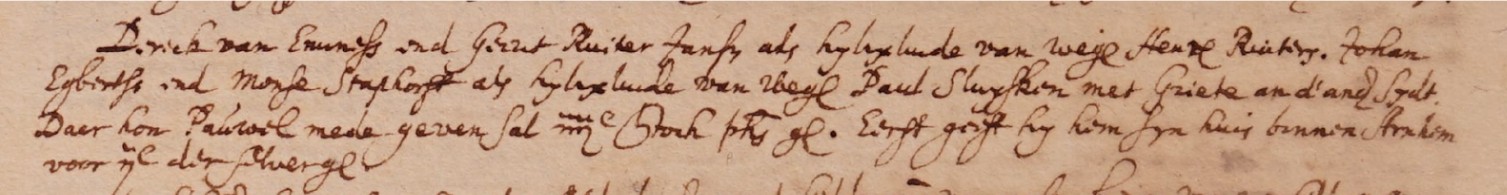 Derick van Emmess end Gerrit Ruiter Janss als hylixlude van wege Henr Ruiters. Johan
Egbertss end Monse Staphorst als hylixlude van wege Paul Sluysken met Griete an d'and sydt.
Daer hon Pauwel mede geven sal phs gl. Eerst geeft hy hem syn huis bonnen Arnhem
voor ijc der selver gl